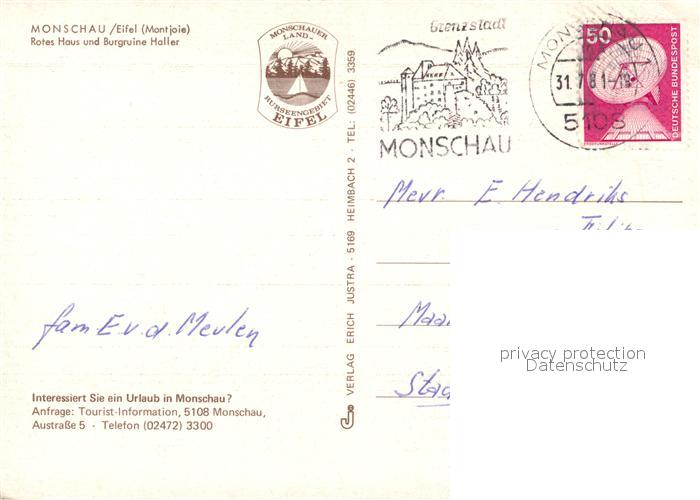 MONSCHAU /Eifel (Montjoie)
Rotes Haus und Burgruine Haller
MONSCHAUER
LAND-
RURSEENGEBIET
EIFEL
Grenzstadt
MONSCHAU
31.7.81-18
5108
50
DEUTSCHE BUNDESPOST
VERLAG ERICH JUSTRA · 5169 HEIMBACH 2 · TEL: (02446) 3359
Mevr. E Hendriks
fam E.v.d. Meulen
privacy protection
Datenschutz
Interessiert Sie ein Urlaub in Monschau?
Anfrage: Tourist-Information, 5108 Monschau,
Austraße 5 · Telefon (02472) 3300